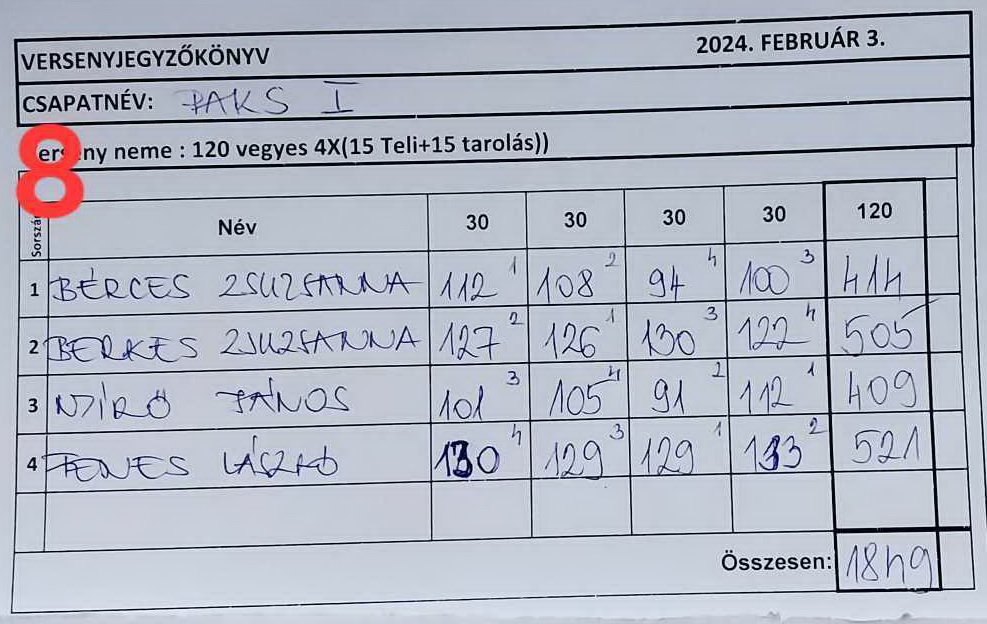 VERSENYJEGYZŐKÖNYV 2024. FEBRUÁR 3.
CSAPATNÉV: PAKS I
8
erseny neme : 120 vegyes 4X(15 Teli+15 tarolás))
Név 30 30 30 30 120
1 BÉRCES ZSUZSANNA 112 1 108 2 94 4 100 3 414
2 BERKES ZSUZSANNA 127 2 126 1 130 3 122 4 505
3 NYÍRŐ JÁNOS 101 3 105 4 91 2 112 1 409
4 FENES LÁSZLÓ 130 4 129 3 129 1 133 2 521
Összesen: 1849